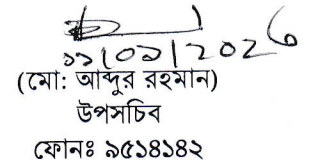 ১১/০১/2026
(মো: আব্দুর রহমান)
উপসচিব
ফোনঃ ৯৫১৪১৪২